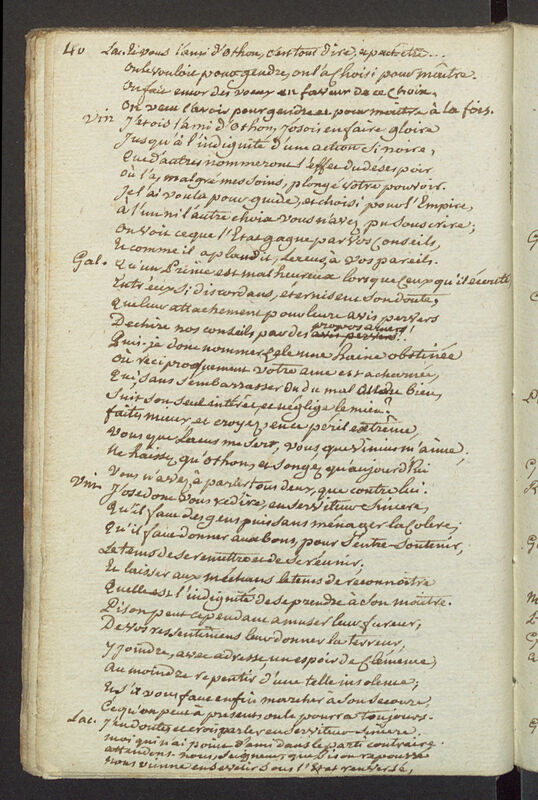 40 Lac. Si vous l'ami d'Othon, c'en tout dire, et peut être...
On le vouloit pour gendre, on l'a choisi pour maître.
On fait encor des vœux en faveur de ce choix.
On veut l'avoir pour gendre et pour maître à la fois.
Vin J'étois l'ami d'Othon, j'osois en faire gloire
Jusqu'à l'indignité d'une action si noire,
Que d'autres nommeront l'effet du désespoir
où l'a, malgré mes soins, plongé votre pouvoir.
Je l'ai voulu pour guide, et choisi pour l'Empire,
à l'un ni l'autre choix vous n'avez pu souscrire;
On voit ce que l'Etat gagne par vos Conseils,
Et comme il aplaudit, Lacus, à vos pareils.
Gal. Qu'un Prince est malheureux lorsque ceux qu'il écoute,
Entr'eux si discordans, éternisent son doute,
Que leur attachement pour leurs avis pervers
Déchire nos conseils par des propos amers!
avis pervers!
Puis-je donc nommer zèle une haine obstinée
Où réciproquement votre ame est acharnée,
Qui, sans s'embarrasser du mal du bien,
Suit son seul intérêt, et néglige le mien?
faites mieux, et croyez, en ce péril extrême,
Vous que Lacus me sert, vous que Vinius m'aime;
Ne haïssez qu'Othon, et songez qu'aujourd'hui
Vous n'avez à parler tous deux, que contre lui.
Vin J'ose donc vous redire, en serviteur sincère,
Qu'il faut des gens puissans ménager la Colère;
Qu'il faut donner aux bons, pour s'entre-soutenir,
Le tems de se remettre et de se réunir,
Et laisser aux méchans le tems de reconnoître
Quelle est l'indignité de se prendre à son maître.
Pison peut cependant amuser leur fureur,
De vos ressentimens leur donner la terreur,
Y joindre, avec adresse, un espoir de Clémence,
Au moindre repentir d'une telle insolence;
Et s'il vous faut enfin marcher à son secours,
Ce qu'on peut à présent on le pourra toujours.
Lac. J'en doute, et crois parler en serviteur sincère
moi qui n'ai point d'ami dans le parti contraire.
attendrons-nous, Seigneur, que Pison repoussé
nous vienne ensevelir sous l'Etat renversé,